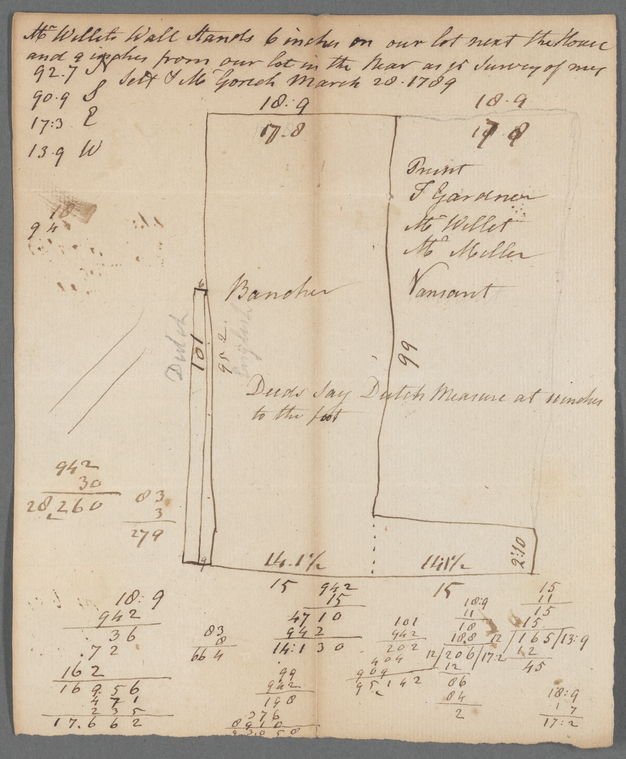 Mr Willets Wall Stands 6 inches on our lot next the House
and 9 inches from our lot in the Rear as pr Survey of
March 28-1789
92.7 N
90.9 S
17:3 E
13.9 W
18:9
17.8
18.9
17 8
T Gardner
Mr Willet
Mr Miller
Vansant
Bancker
6
101
Dutch
95 2
English
99
Deeds Say Dutch Measure at 11 inches
to the foot
9
14.1½
14.1½
2:10
15
15
942
30
28,260
83
3
279
18:9
942
36
.72
162
16956
471
235
17.662
83
8
664
942
15
4710
942
14:130
99
942
198
376
101
942
202
404
909
95,142
18:9
11
18
188
12/206/17:2
12
86
84
2
15
11
15
15
12/165/13:9
12
45
18:9
17
17:2